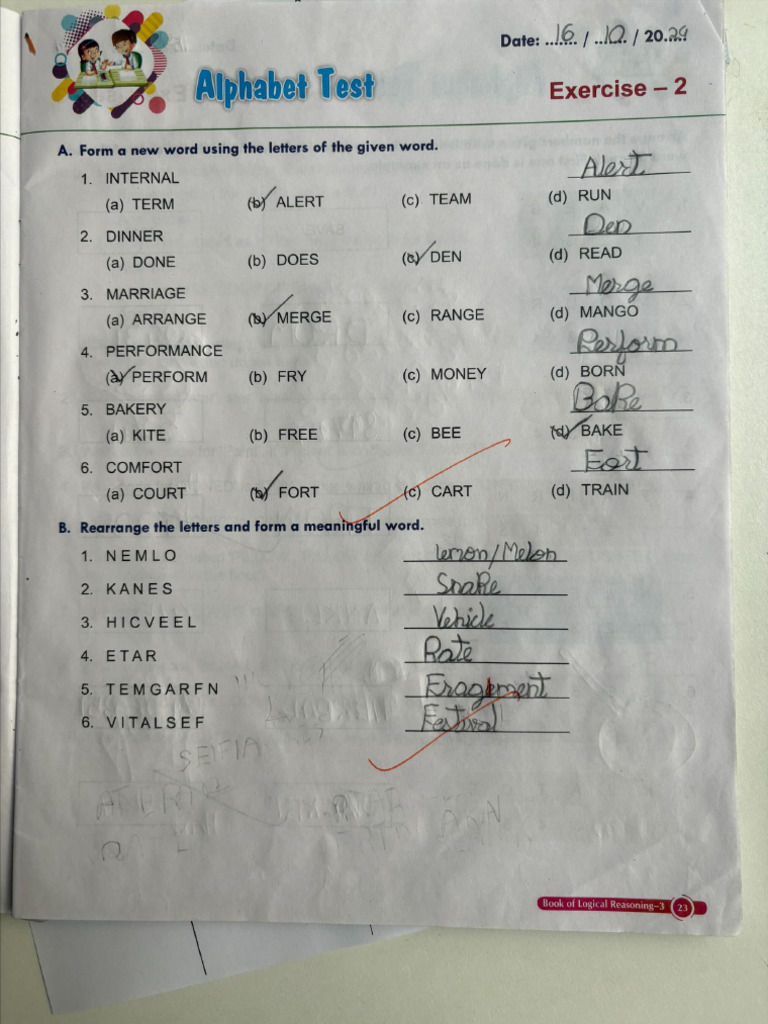 Date: 16 / 10 / 2029
Alphabet Test
Exercise – 2
A. Form a new word using the letters of the given word.
1. INTERNAL Alert
(a) TERM (b) ALERT (c) TEAM (d) RUN
2. DINNER Den
(a) DONE (b) DOES (c) DEN (d) READ
3. MARRIAGE Merge
(a) ARRANGE (b) MERGE (c) RANGE (d) MANGO
4. PERFORMANCE Perform
(a) PERFORM (b) FRY (c) MONEY (d) BORN
5. BAKERY Bake
(a) KITE (b) FREE (c) BEE (d) BAKE
6. COMFORT Fort
(a) COURT (b) FORT (c) CART (d) TRAIN
B. Rearrange the letters and form a meaningful word.
1. N E M L O lemon/Melon
2. K A N E S Snake
3. H I C V E E L Vehicle
4. E T A R Rate
5. T E M G A R F N Fragment
6. V I T A L S E F Festival
SEIFIA
Book of Logical Reasoning–3 23